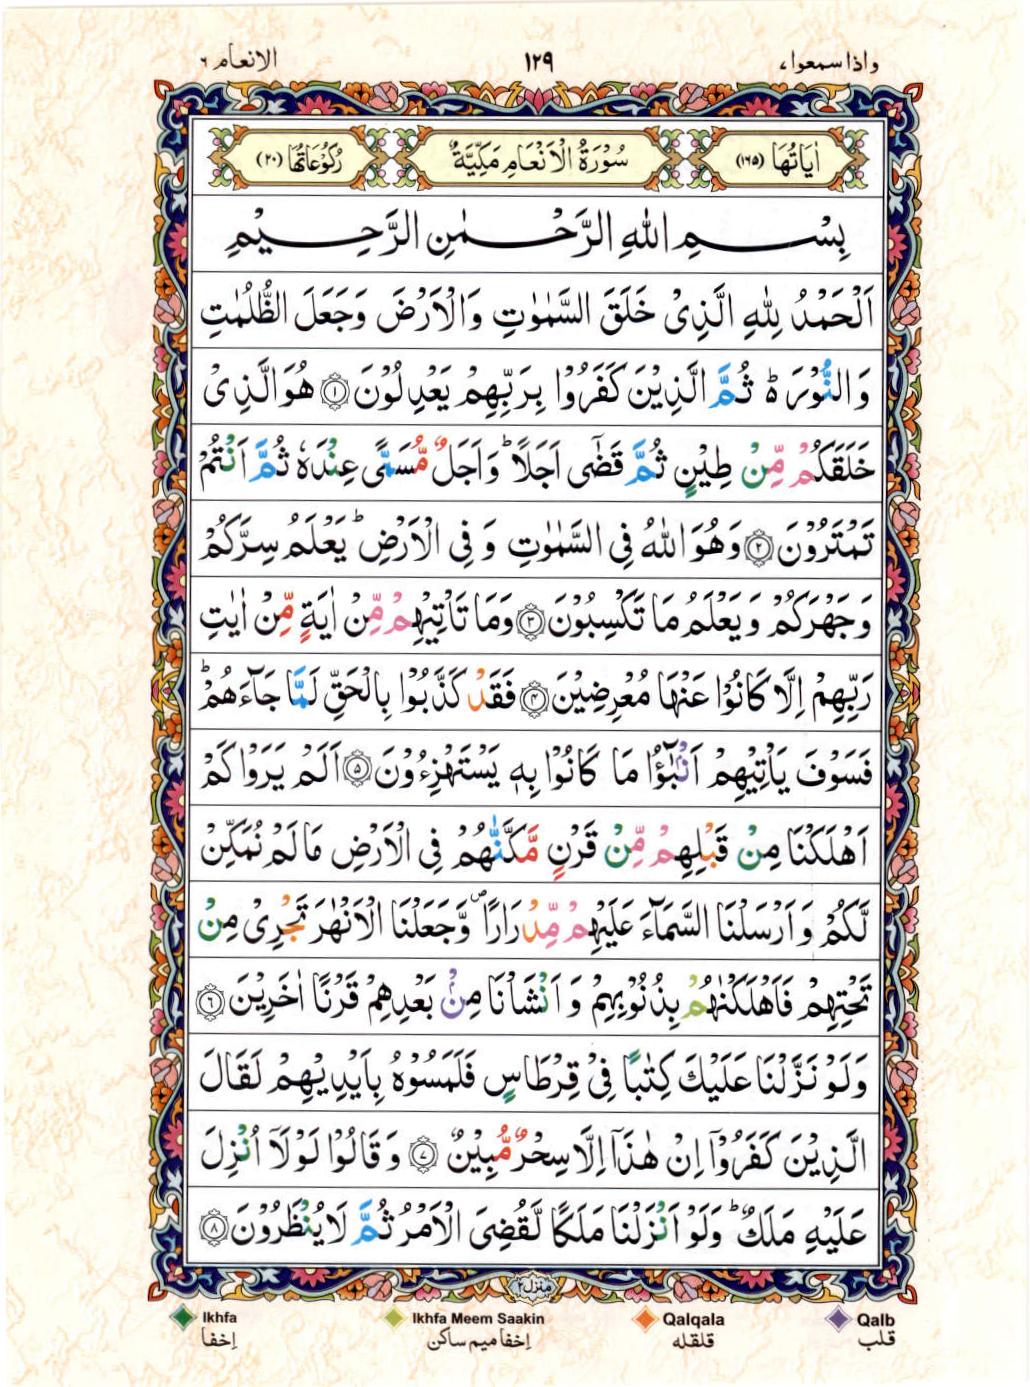 واذا سمعوا ٧ ١٢٩ الانعام ٦
اٰيَاتُهَا (١٦٥) سُوْرَةُ الْاَنْعَامِ مَكِّيَّةٌ رُكُوْعَاتُهَا (٢٠)
بِسْمِ اللّٰهِ الرَّحْمٰنِ الرَّحِيْمِ
اَلْحَمْدُ لِلّٰهِ الَّذِىْ خَلَقَ السَّمٰوٰتِ وَالْاَرْضَ وَجَعَلَ الظُّلُمٰتِ
وَالنُّوْرَ ؕ ثُمَّ الَّذِيْنَ كَفَرُوْا بِرَبِّهِمْ يَعْدِلُوْنَ ۝١ هُوَ الَّذِىْ
خَلَقَكُمْ مِّنْ طِيْنٍ ثُمَّ قَضٰٓى اَجَلًا ؕ وَاَجَلٌ مُّسَمًّى عِنْدَهٗ ثُمَّ اَنْتُمْ
تَمْتَرُوْنَ ۝٢ وَهُوَ اللّٰهُ فِى السَّمٰوٰتِ وَ فِى الْاَرْضِ ؕ يَعْلَمُ سِرَّكُمْ
وَجَهْرَكُمْ وَيَعْلَمُ مَا تَكْسِبُوْنَ ۝٣ وَمَا تَاْتِيْهِمْ مِّنْ اٰيَةٍ مِّنْ اٰيٰتِ
رَبِّهِمْ اِلَّا كَانُوْا عَنْهَا مُعْرِضِيْنَ ۝٤ فَقَدْ كَذَّبُوْا بِالْحَقِّ لَمَّا جَآءَهُمْ ؕ
فَسَوْفَ يَاْتِيْهِمْ اَنْۢبٰٓؤُا مَا كَانُوْا بِهٖ يَسْتَهْزِءُوْنَ ۝٥ اَلَمْ يَرَوْا كَمْ
اَهْلَكْنَا مِنْ قَبْلِهِمْ مِّنْ قَرْنٍ مَّكَّنّٰهُمْ فِى الْاَرْضِ مَا لَمْ نُمَكِّنْ
لَّكُمْ وَاَرْسَلْنَا السَّمَآءَ عَلَيْهِمْ مِّدْرَارًا ۪ وَّجَعَلْنَا الْاَنْهٰرَ تَجْرِىْ مِنْ
تَحْتِهِمْ فَاَهْلَكْنٰهُمْ بِذُنُوْبِهِمْ وَاَنْشَاْنَا مِنْۢ بَعْدِهِمْ قَرْنًا اٰخَرِيْنَ ۝٦
وَلَوْ نَزَّلْنَا عَلَيْكَ كِتٰبًا فِىْ قِرْطَاسٍ فَلَمَسُوْهُ بِاَيْدِيْهِمْ لَقَالَ
الَّذِيْنَ كَفَرُوْۤا اِنْ هٰذَاۤ اِلَّا سِحْرٌ مُّبِيْنٌ ۝٧ وَقَالُوْا لَوْلَاۤ اُنْزِلَ
عَلَيْهِ مَلَكٌ ؕ وَلَوْ اَنْزَلْنَا مَلَكًا لَّقُضِىَ الْاَمْرُ ثُمَّ لَا يُنْظَرُوْنَ ۝٨
منزل ٢
Ikhfa Ikhfa Meem Saakin Qalqala Qalb
إخفا إخفا ميم ساكن قلقله قلب